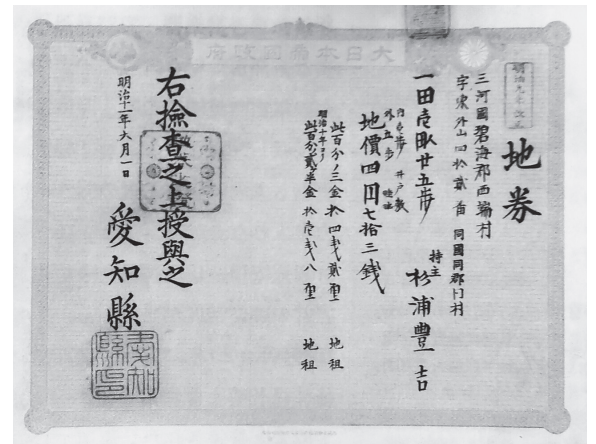 大日本帝國政府
明治九年改正
地券
三河國碧海郡西端村
字東外山四拾貳番 同國同郡同村
一田壱畝廿五歩 持主 杉浦豊吉
内壱歩 井戸敷
外五歩 畦畔
地價四円七拾三銭
此百分ノ三金拾四銭貳厘 地租
明治十年ヨリ
此百分ノ貳半金拾壱銭八厘 地租
右検査之上授與之
明治十一年六月一日
愛知縣
愛知縣印